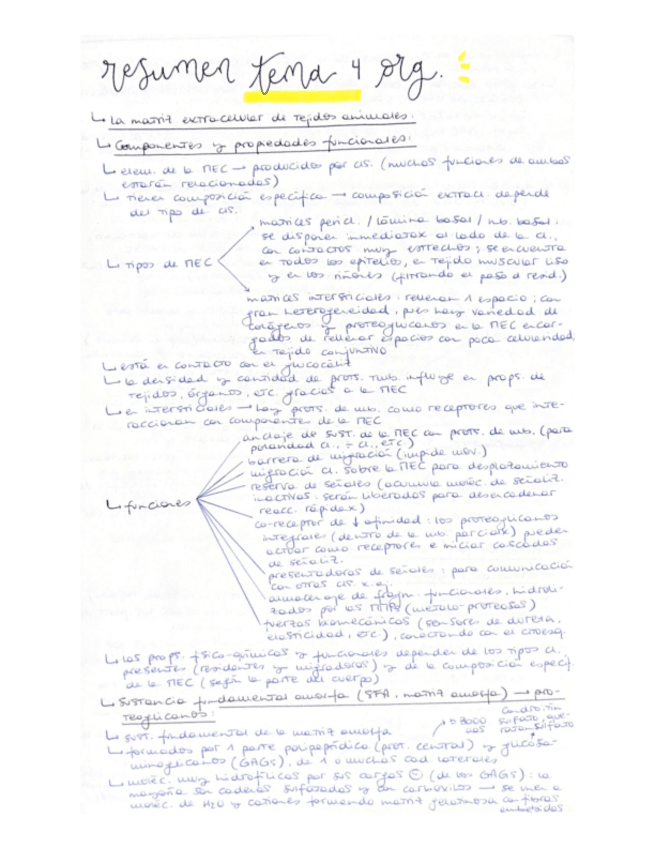 resumen tema 4 org.
↳ La matriz extracelular de tejidos animales:
↳ Componentes y propiedades funcionales:
↳ elem. de la MEC → producidos por cls. (muchas funciones de ambos
estarán relacionadas)
↳ tienen composición específica → composición extracl. depende
del tipo de cls.
↳ tipos de MEC
matrices pericl. / lámina basal / mb. basal:
se disponen inmediatax al lado de la cl.,
con contactos muy estrechos; se encuentra
en todos los epitelios, en tejido muscular liso
y en los riñones (filtrando el paso d resid.)
matrices intersticiales: rellenan 1 espacio; con
gran heterogeneidad, pues hay variedad de
colágenos y proteoglicanos en la MEC encar-
gados de rellenar espacios con poca celularidad,
en tejido conjuntivo
↳ está en contacto con el glucocálix
↳ la densidad y cantidad de prots. influye en props. de
tejidos, órganos, etc. gracias a la MEC
↳ en intersticiales → hay prots. de mb. como receptores que inte-
raccionan con componentes de la MEC
↳ funciones
anclaje de sust. de la MEC con prots. de mb. (para
polaridad cl., ÷ cl., etc)
barrera de migración (impide mov.)
migración cl. sobre la MEC para desplazamiento
reserva de señales (acumula moléc. de señaliz.
inactivas: serán liberadas para desencadenar
reacc. rápidax)
co-receptor de ↓ afinidad: los proteoglicanos
integrales (dentro de la mb. parcialx) pueden
actuar como receptores e iniciar cascadas
de señaliz.
presentadoras de señales: para comunicación
con otras cls. x ej.
almacenaje de fragm. funcionales, hidroli-
zados por las MMPs (metalo-proteasas)
fuerzas biomecánicas (sensores de dureza,
elasticidad, etc.), conectando con el citoesq.
↳ las props. físico-químicas y funcionales dependen de los tipos cl.
presentes (residentes y migradoras) y de la composición específ.
de la MEC (según la parte del cuerpo)
↳ Sustancia fundamental amorfa (SFA, matriz amorfa) → pro-
teoglicanos:
↳ sust. fundamental de la matriz amorfa
↳ formados por 1 parte polipeptídica (prot. central) y glucosa-
minoglicanos (GAGs), de 1 o muchas cad. laterales
condroitín
sulfato, que-
ratán sulfato
↳ moléc. muy hidrofílicas por sus cargas ⊖ (de los GAGs): la
mayoría son cadenas sulfatadas y con carboxilos → se unen a
moléc. de H2O y cationes formando matriz gelatinosa con fibras
embebidas